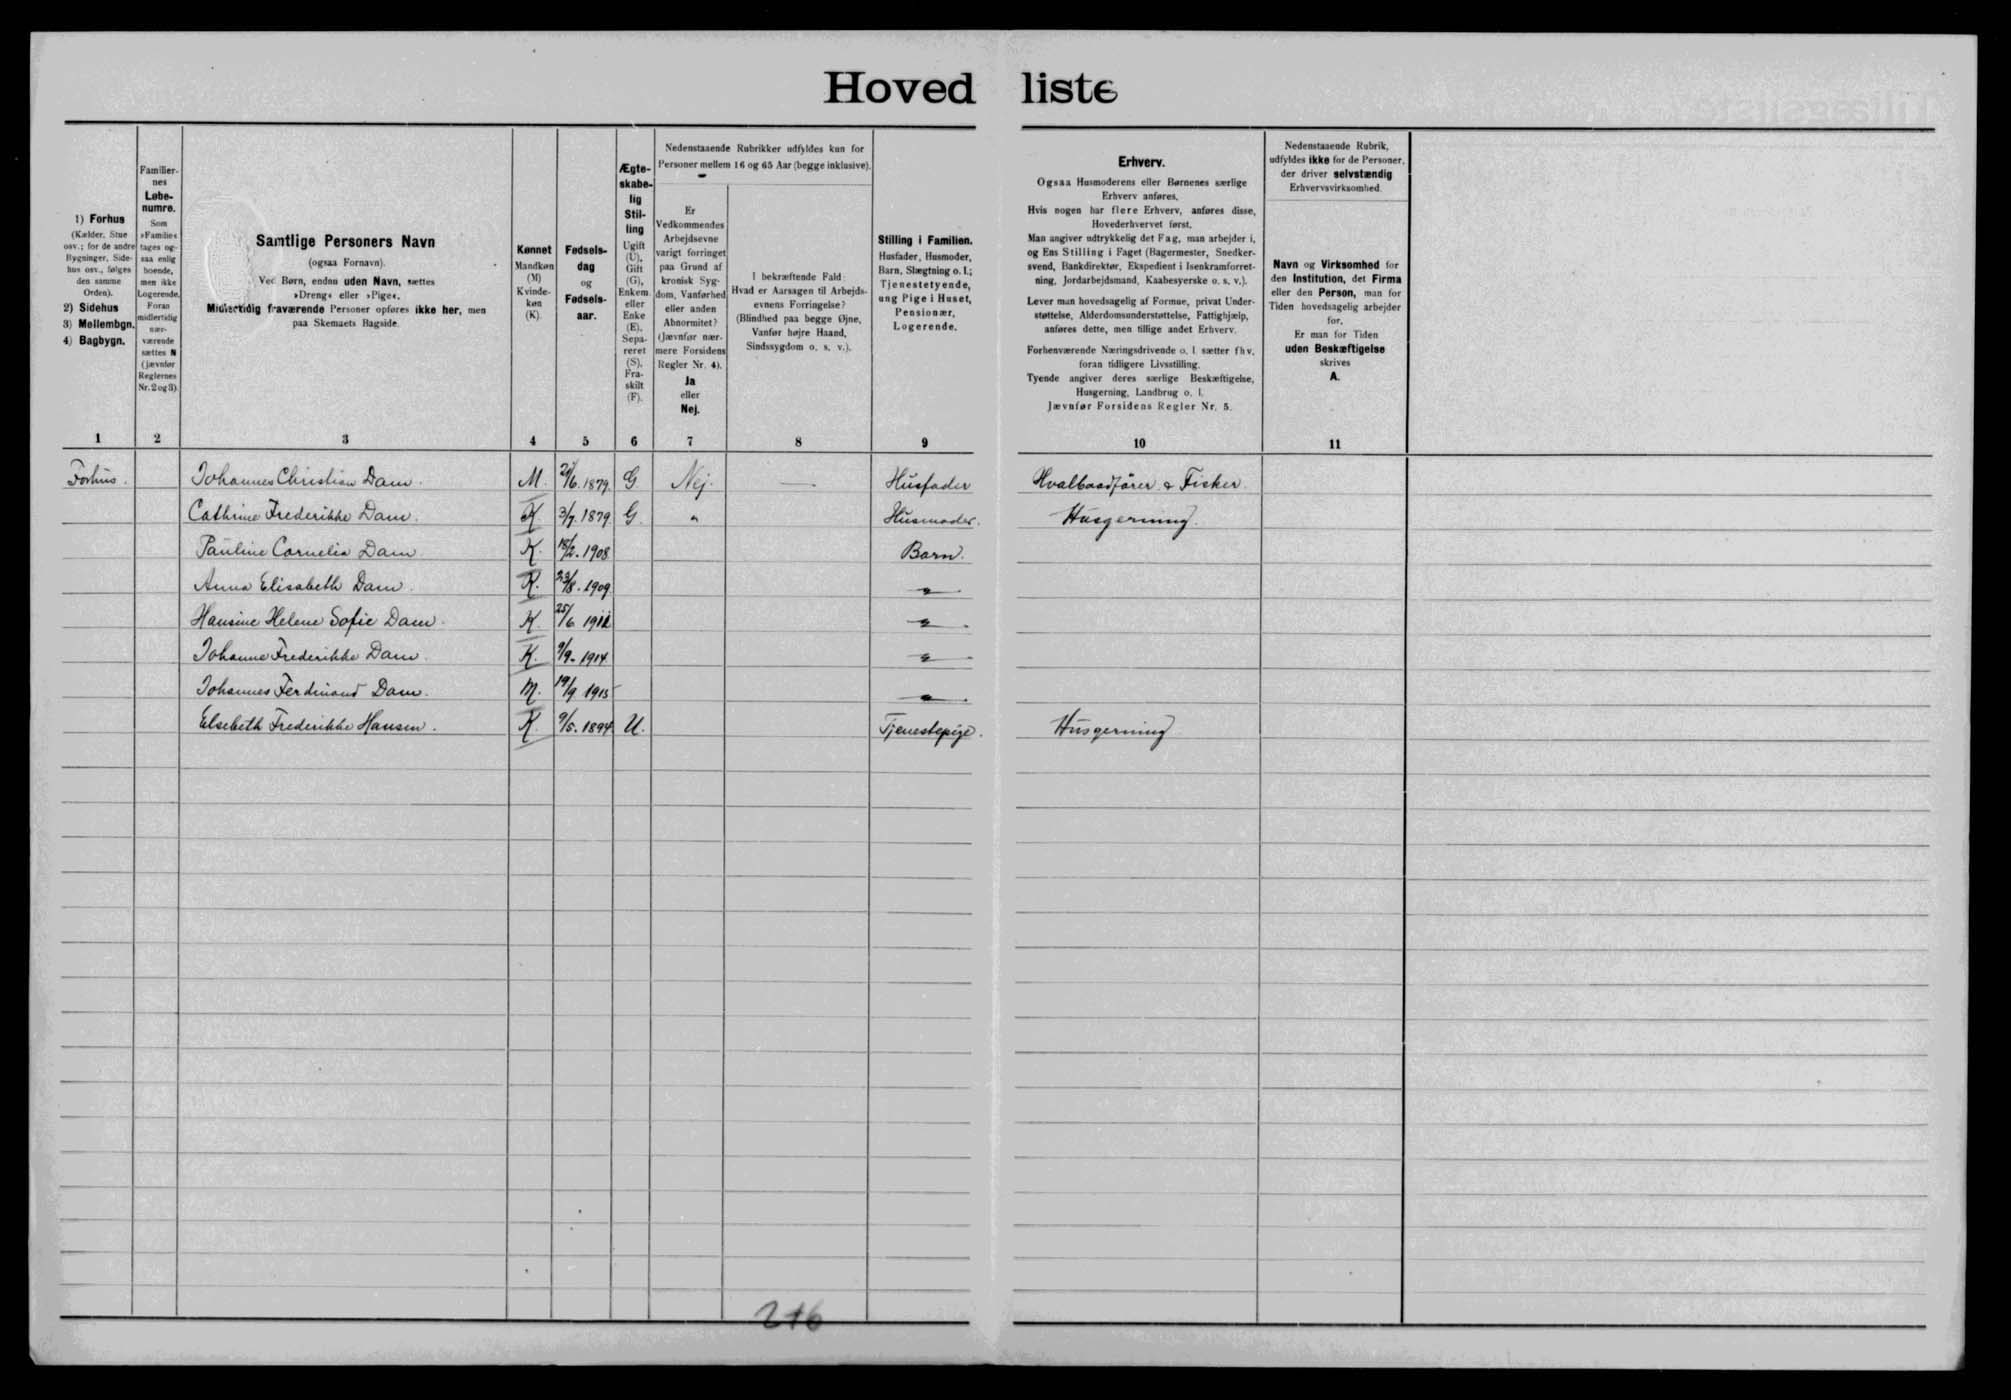 Hovedliste
1) Forhus
(Kælder, Stue
osv.; for de andre
Bygninger, Side-
hus osv., følges
den samme
Orden).
2) Sidehus
3) Mellembgn.
4) Bagbygn.
1
Familier-
nes
Løbe-
numre.
Som
»Familie«
tages og-
saa enlig
boende,
men ikke
Logerende.
Foran
midlertidig
nær-
værende
sættes N
(jævnfør
Reglernes
Nr. 2 og 3)
2
Samtlige Personers Navn
(ogsaa Fornavn).
Ved Børn, endnu uden Navn, sættes
»Dreng« eller »Pige«.
Midlertidig fraværende Personer opføres ikke her, men
paa Skemaets Bagside.
3
Kønnet
Mandkøn
(M)
Kvinde-
køn
(K).
4
Fødsels-
dag
og
Fødsels-
aar.
5
Ægte-
skabe-
lig
Stil-
ling
Ugift
(U),
Gift
(G),
Enkem.
eller
Enke
(E),
Sepa-
reret
(S),
Fra-
skilt
(F).
6
Nedenstaaende Rubrikker udfyldes kun for
Personer mellem 16 og 65 Aar (begge inklusive).
Er
Vedkommendes
Arbejdsevne
varigt forringet
paa Grund af
kronisk Syg-
dom, Vanførhed
eller anden
Abnormitet?
(Jævnfør nær-
mere Forsidens
Regler Nr. 4).
Ja
eller
Nej.
7
I bekræftende Fald:
Hvad er Aarsagen til Arbejds-
evnens Forringelse?
(Blindhed paa begge Øjne,
Vanfør højre Haand,
Sindssygdom o. s. v.).
8
Stilling i Familien.
Husfader, Husmoder,
Barn, Slægtning o. l.;
Tjenestetyende,
ung Pige i Huset,
Pensionær,
Logerende.
9
Erhverv.
Ogsaa Husmoderens eller Børnenes særlige
Erhverv anføres.
Hvis nogen har flere Erhverv, anføres disse,
Hovederhvervet først.
Man angiver udtrykkelig det Fag, man arbejder i,
og Ens Stilling i Faget (Bagermester, Snedker-
svend, Bankdirektør, Ekspedient i Isenkramforret-
ning, Jordarbejdsmand, Kaabesyerske o. s. v.).
Lever man hovedsagelig af Formue, privat Under-
støttelse, Alderdomsunderstøttelse, Fattighjælp,
anføres dette, men tillige andet Erhverv.
Forhenværende Næringsdrivende o. l. sætter fhv.
foran tidligere Livsstilling.
Tyende angiver deres særlige Beskæftigelse,
Husgerning, Landbrug o. l.
Jævnfør Forsidens Regler Nr. 5.
10
Nedenstaaende Rubrik,
udfyldes ikke for de Personer,
der driver selvstændig
Erhvervsvirksomhed.
Navn og Virksomhed for
den Institution, det Firma
eller den Person, man for
Tiden hovedsagelig arbejder
for.
Er man for Tiden
uden Beskæftigelse
skrives
A.
11
Forhus. Johannes Christian Dam. M. /6. 1879. G Nej. — Husfader Hvalbaadfører & Fisker.
Cathrine Frederikke Dam. K 3/7. 1879 G. " Husmoder. Husgerning.
Pauline Cornelia Dam K. 18/2. 1908 Barn.
Anna Elisabeth Dam. K. 23/8. 1909 "
Hansine Helene Sofie Dam. K. 25/6 "
Johanne Frederikke Dam. K. 9/9. 1914 "
Johannes Ferdinand Dam. M. 19/9 1915 "
Elsebeth Frederikke Hansen. K. 9/5. 1894 U. Tjenestepige. Husgerning
216